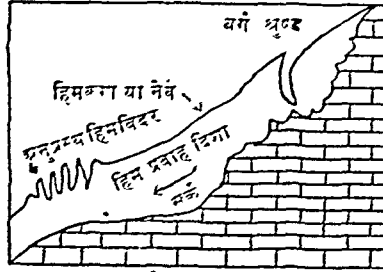 वर्ग श्रुण्ड
हिमकण या नेवे
अनुप्रस्थ हिमविदर
हिम प्रवाह दिशा
सर्क